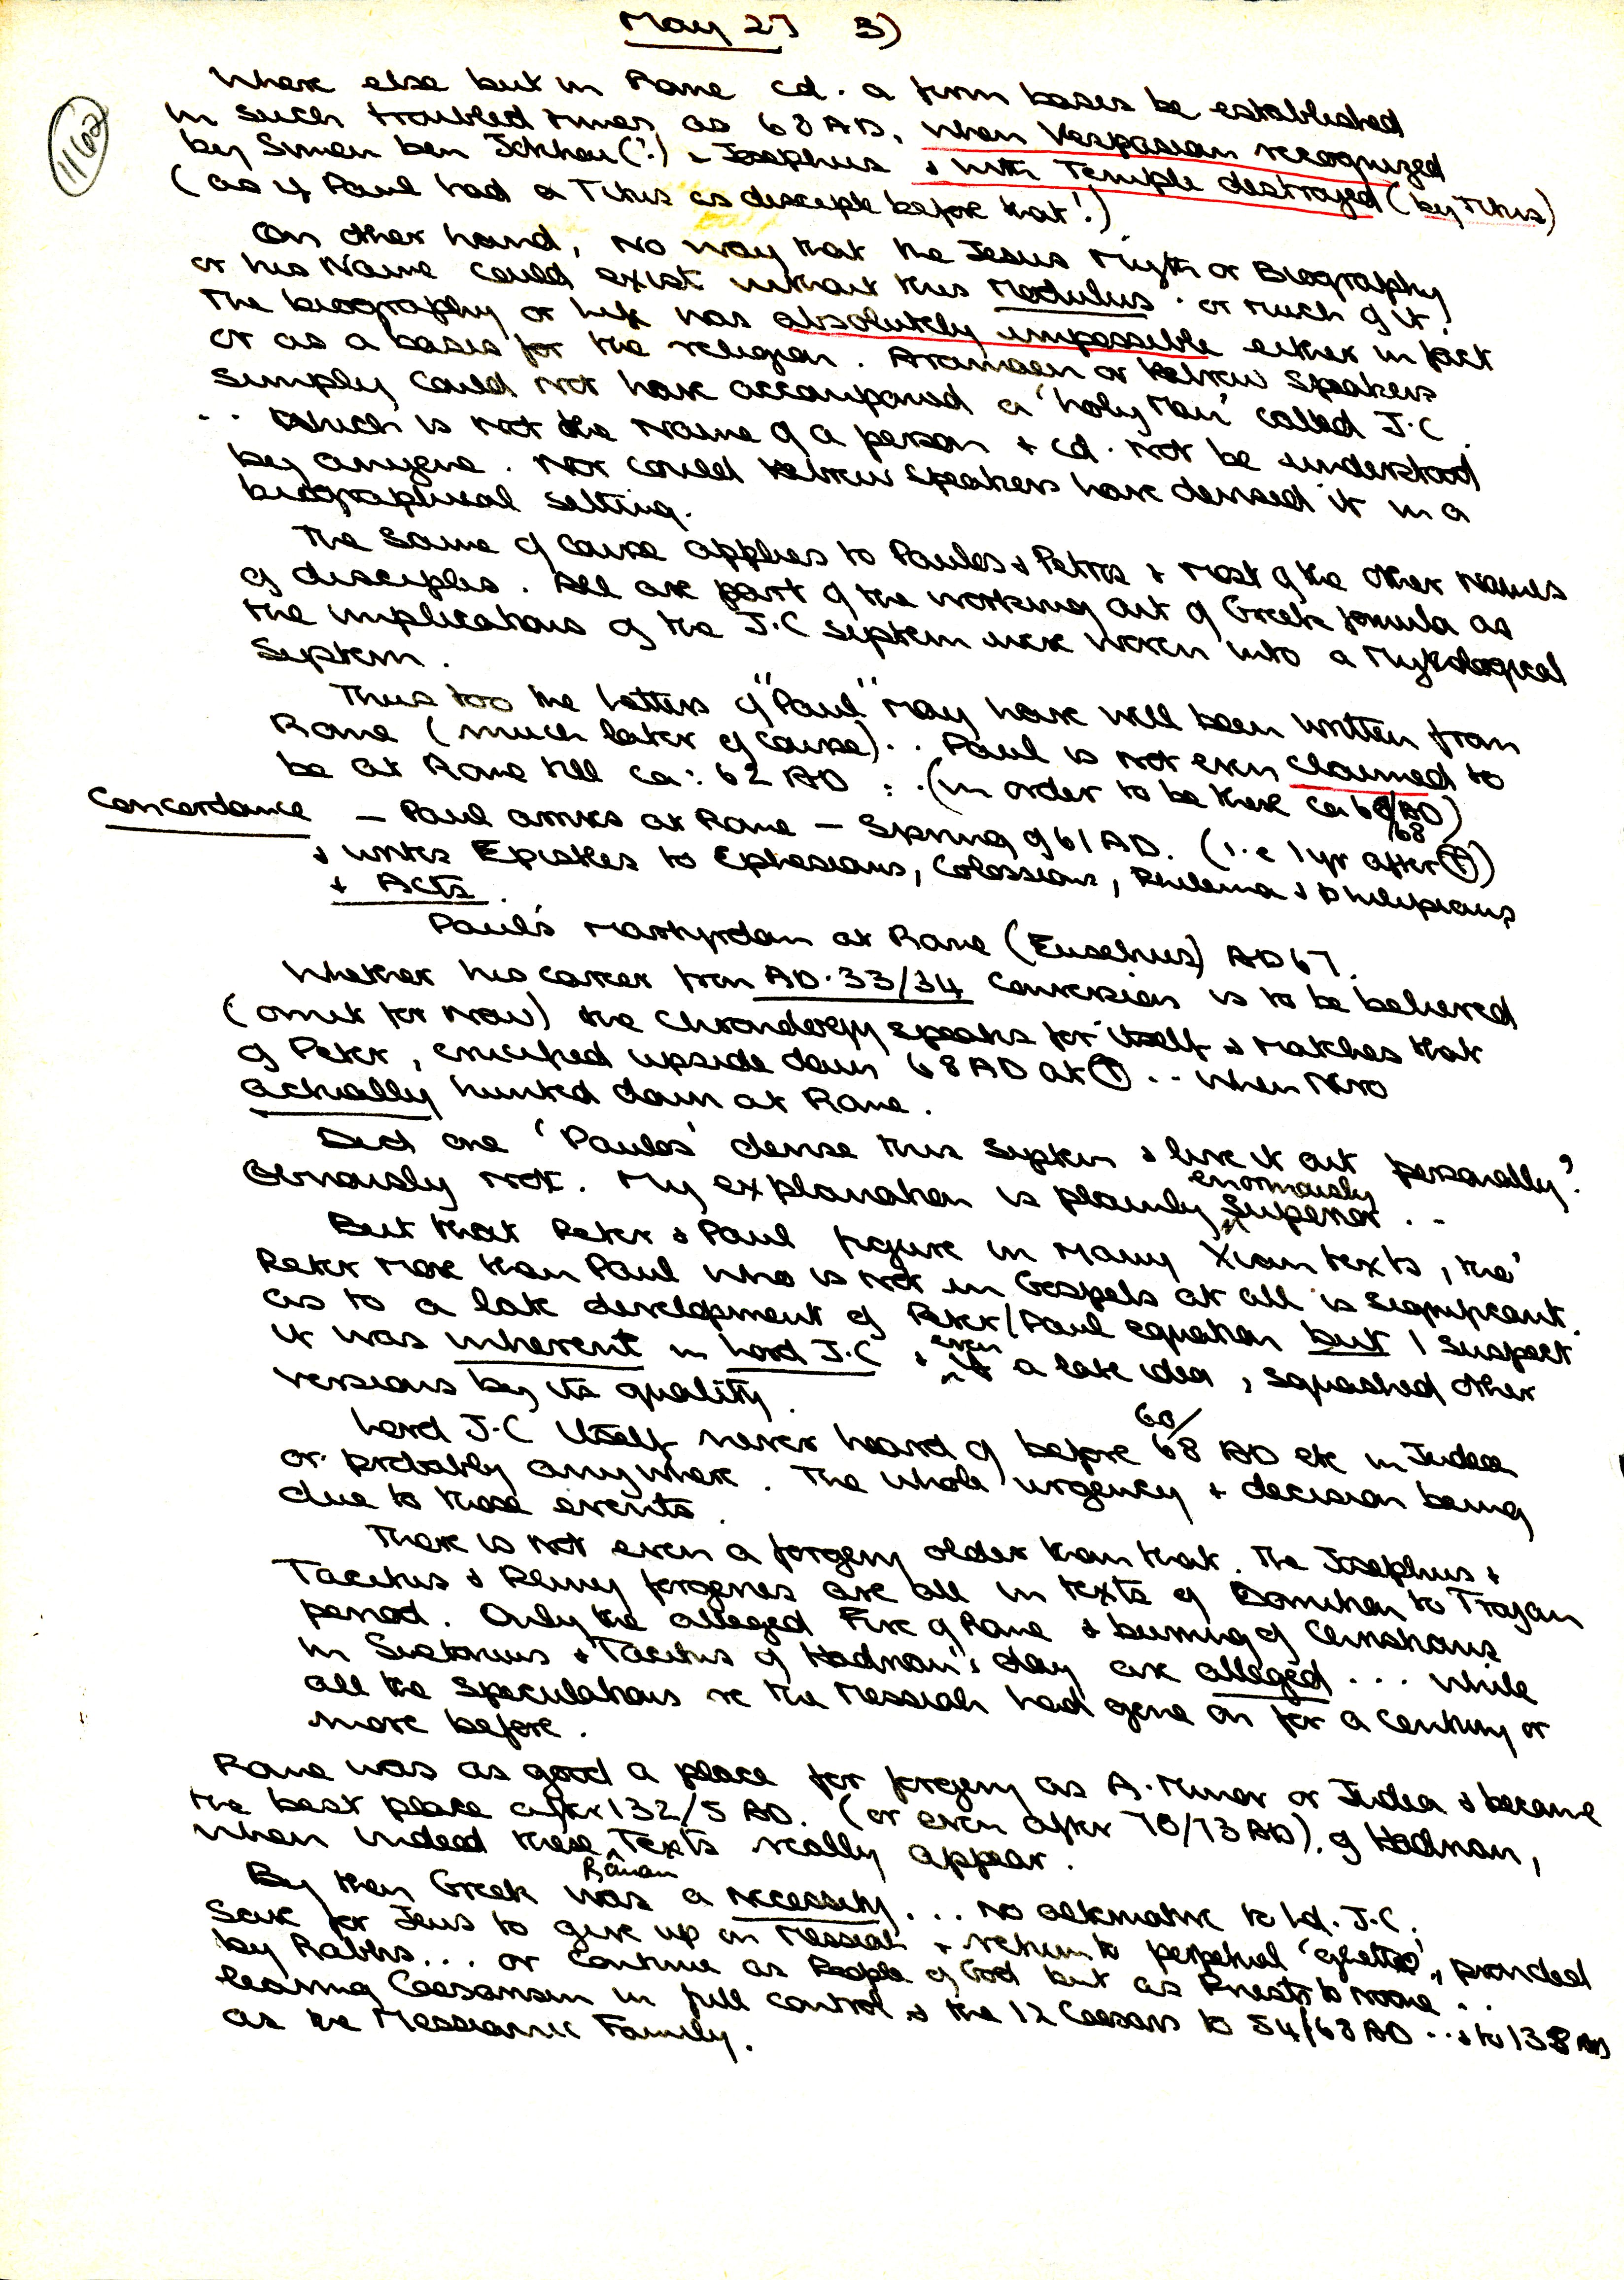 May 27 3)
1162
Where else but in Rome cd. a firm basis be established
in such troubled times as 68 AD, when Vespasian recognized
by Simon ben (?) & Josephus & with Temple destroyed (by Titus)
(as if Paul had a Titus as disciple before that!)
On other hand, no way that the Jesus Myth or Biography
or his Name could exist without this Modulus. or much of it!
The biography or life was absolutely impossible either in fact
or as a basis for the religion. Aramaen or Hebrew Speakers
simply could not have accompanied a 'holy Man' called J.C.
.. Which is not the Name of a person & cd. not be understood
by anyone. Nor could Hebrew Speakers have devised it in a
biographical setting.
The same of course applies to Paulos & Petros & most of the other Names
of disciples. All are part of the working out of Greek formula as
the implications of the J.C system were woven into a Mythological
System.
Thus too the letters of "Paul" may have well been written from
Rome (much later of course) .. Paul is not even claimed to
be at Rome till ca: 62 AD : . (in order to be there ca AD)
68
Concordance — Paul arrives at Rome — Spring of 61 AD. (i.e 1 yr after)
& writes Epistles to Ephesians, Colossians, Philema & Philipians,
& Acts.
Paul's Martyrdom at Rome (Eusebius) AD 67.
Whether his career from AD. 33/34 Conversion is to be believed
(omit for now) the Chronology speaks for itself & matches that
of Peter, crucified upside down 68 AD at .. when Nero
actually hunted down at Rome.
Did one 'Paulos' devise this System & live it out personally?
Obviously not. My explanation is plainly enormously Superior ..
But that Peter & Paul figure in many Xian texts, tho'
Peter more than Paul who is not in Gospels at all is significant.
as to a late development of Peter/Paul equation but I suspect
it was inherent in Lord J.C & even if a late idea, squashed other
versions by its quality.
Lord J.C itself never heard of before 60/68 AD etc in Judea
or probably anywhere. The whole urgency & decision being
due to those events.
There is not even a forgery older than that. The Josephus &
Tacitus & Pliny forgeries are all in texts of Domitian to Trajan
period. Only the alleged Fire of Rome & burning of Christians
in Suetonius & Tacitus of Hadrian's day are alleged ... While
all the Speculations re the Messiah had gone on for a century or
more before.
Rome was as good a place for forgery as A. Minor or Judea & became
the best place after 132/5 AD. (or even after 70/73 AD). of Hadrian,
when indeed these Texts really appear.
By then Greek was a necessity ... No alternative to Ld. J.C.
Save for Jews to give up on Messiah & return to perpetual 'ghetto', provided
by Rabbis... or continue as People of God but as Priests to noone ..
leaving Caesarism in full control & the 12 Caesars to 54/68 AD .. & to 138 AD
as the Messianic Family.